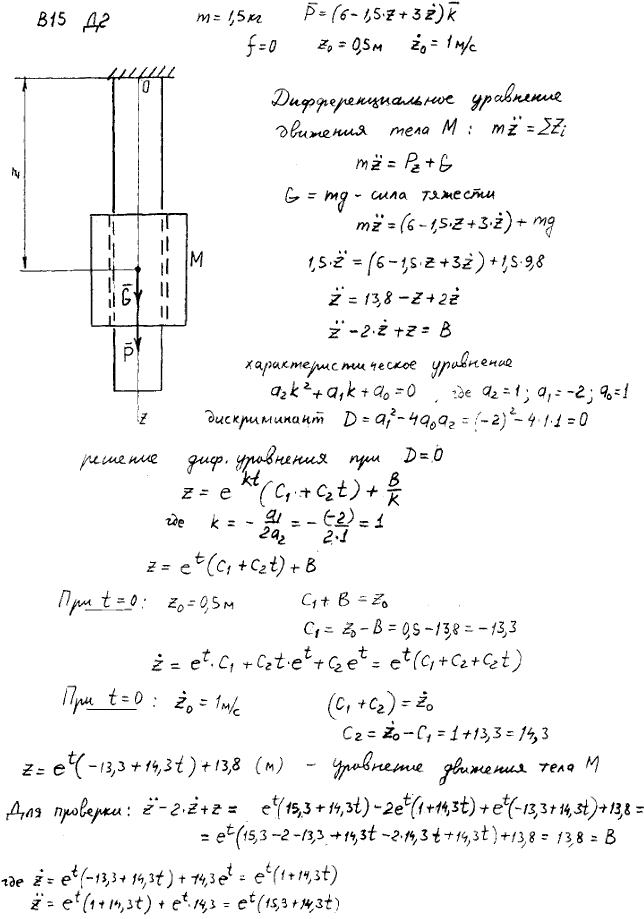 В15 Д2 m = 1,5 кг P̄ = (6 - 1,5·z + 3ż) k̄
f = 0 z₀ = 0,5м ż₀ = 1 м/с
O
Дифференциальное уравнение
движения тела М : mz̈ = ΣZᵢ
mz̈ = P_z + G
z
G = mg - сила тяжести
mz̈ = (6 - 1,5·z + 3·ż) + mg
M
1,5·z̈ = (6 - 1,5·z + 3ż) + 1,5·9,8
Ḡ
z̈ = 13,8 - z + 2ż
z̈ - 2·ż + z = B
P̄
характеристическое уравнение
a₂k² + a₁k + a₀ = 0 , где a₂ = 1 ; a₁ = -2 ; a₀ = 1
z
дискриминант D = a₁² - 4a₀a₂ = (-2)² - 4·1·1 = 0
решение диф. уравнения при D = 0
z = e^{kt} (C₁ + C₂t) + B/k
где k = - a₁/2a₂ = - (-2)/2·1 = 1
z = e^t (C₁ + C₂t) + B
При t = 0 : z₀ = 0,5 м C₁ + B = z₀
C₁ = z₀ - B = 0,5 - 13,8 = -13,3
ż = e^t · C₁ + C₂t·e^t + C₂e^t = e^t (C₁ + C₂ + C₂t)
При t = 0 : ż₀ = 1 м/с (C₁ + C₂) = ż₀
C₂ = ż₀ - C₁ = 1 + 13,3 = 14,3
z = e^t (-13,3 + 14,3t) + 13,8 (м) - уравнение движения тела М
Для проверки : z̈ - 2·ż + z = e^t(15,3 + 14,3t) - 2e^t(1 + 14,3t) + e^t(-13,3 + 14,3t) + 13,8 =
= e^t (15,3 - 2 - 13,3 + 14,3t - 2·14,3t + 14,3t) + 13,8 = 13,8 = B
где ż = e^t (-13,3 + 14,3t) + 14,3e^t = e^t (1 + 14,3t)
z̈ = e^t (1 + 14,3t) + e^t · 14,3 = e^t (15,3 + 14,3t)